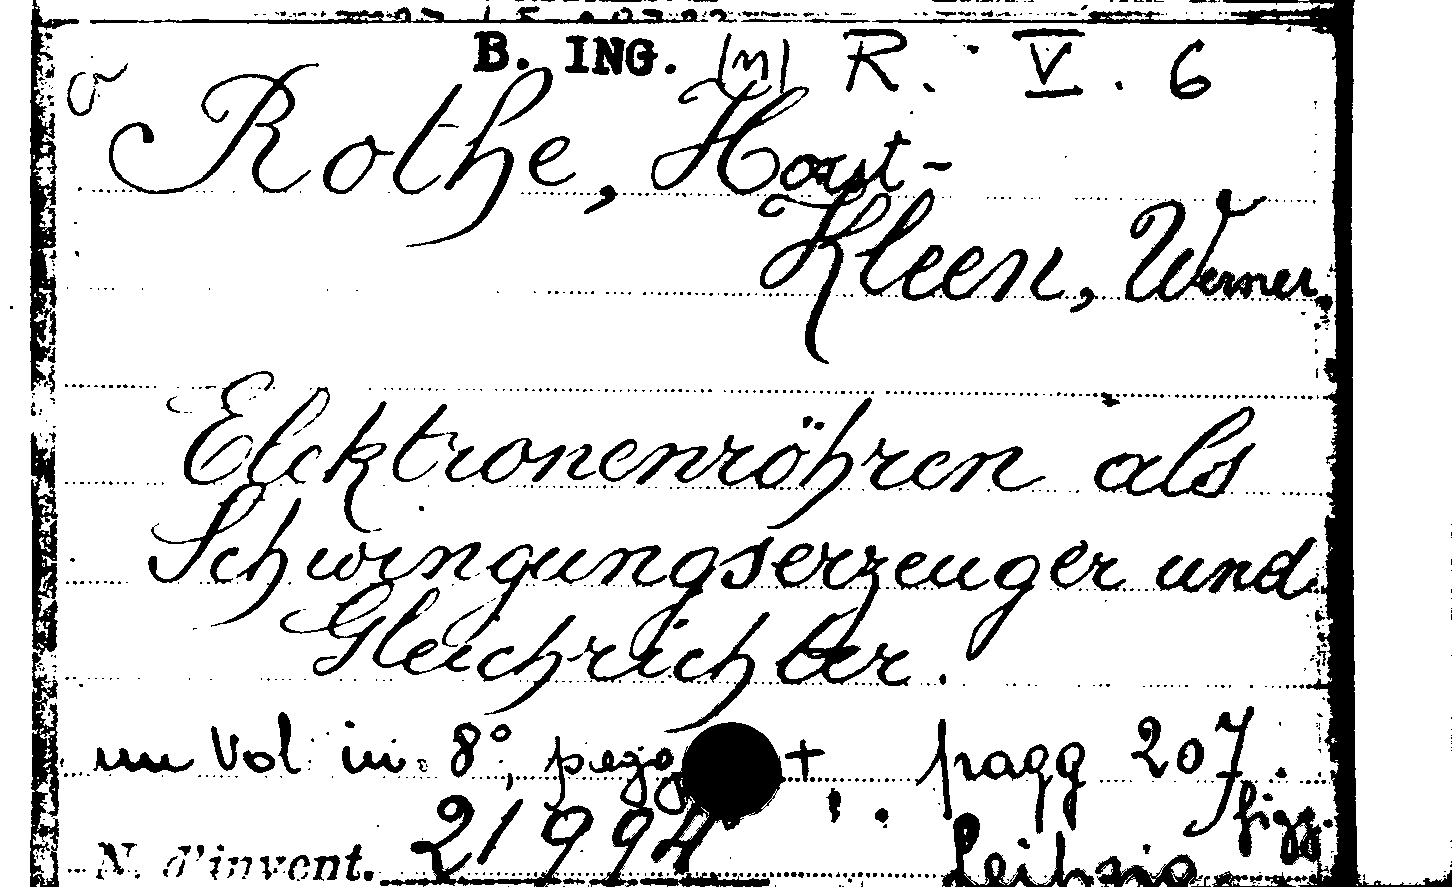 B. ING. (m) R. V. 6
Rothe, Horst-
Kleen, Werner
Elektronenröhren als
Schwingungserzeuger und
Gleichrichter.
un Vol in 8°, pagg + pagg 207.
figg.
N. d'invent. 21994 Leipzig